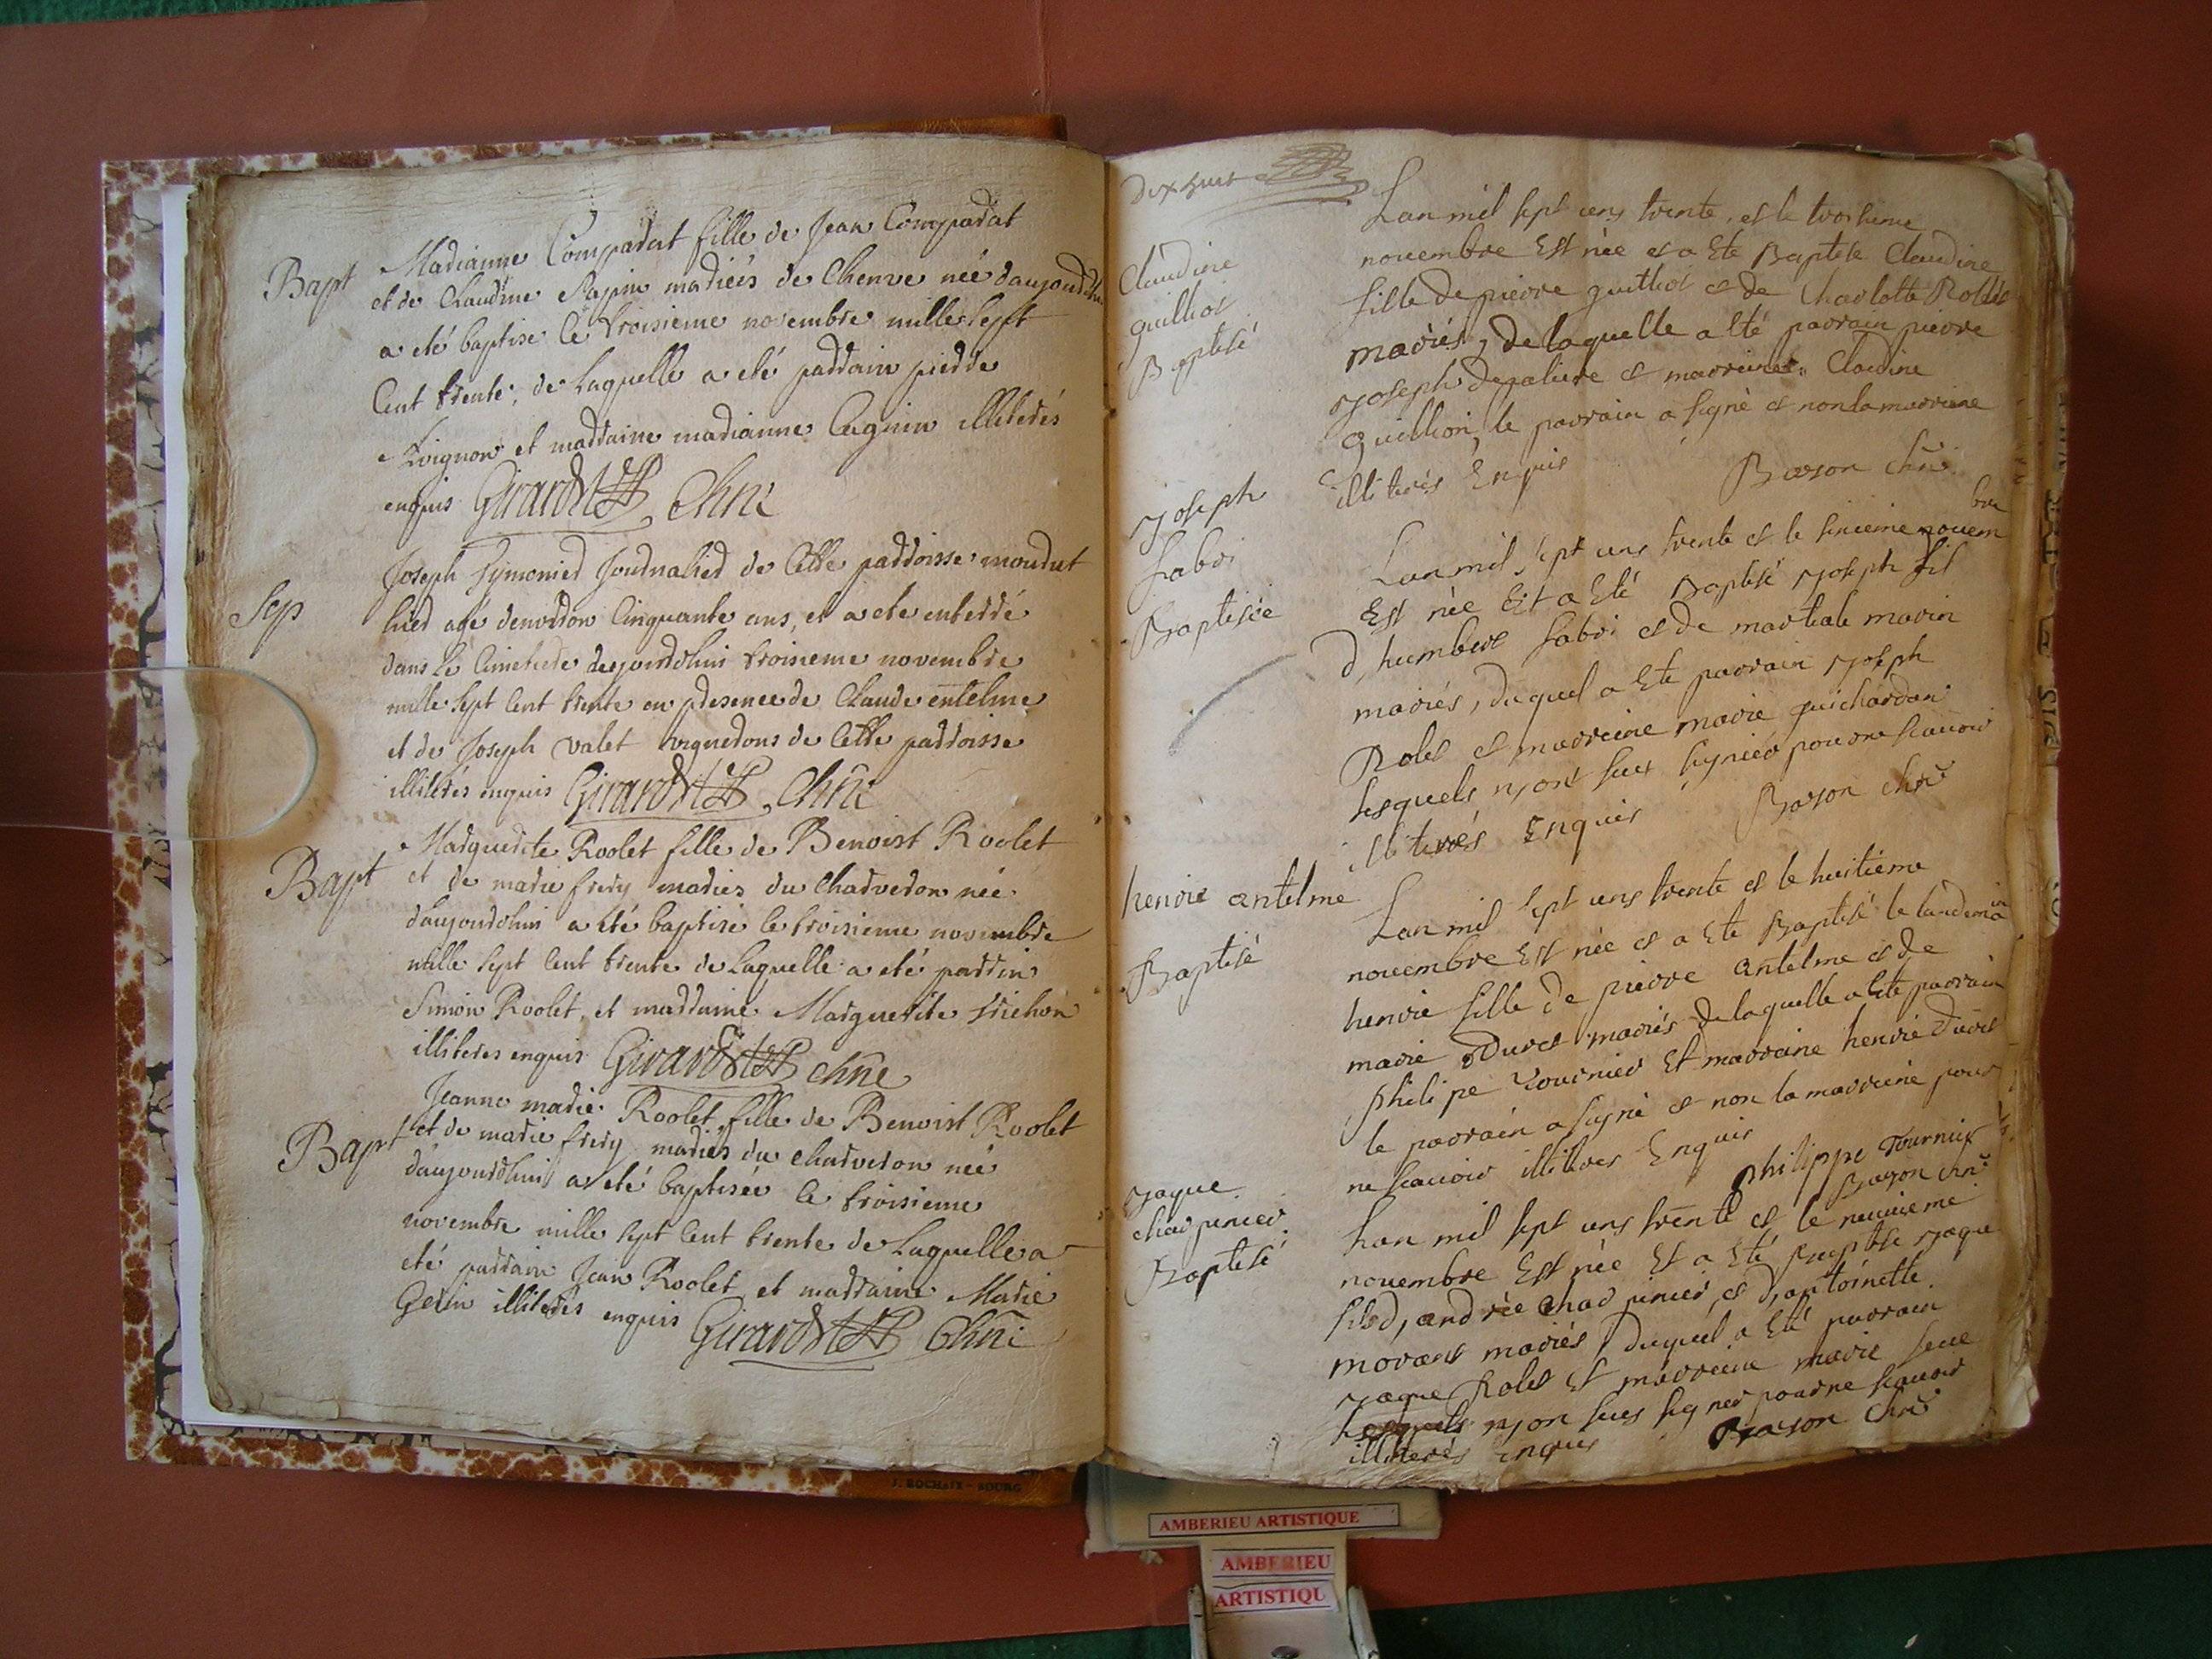 Bapt
Marianne Comparat fille de Jean Comparat
et de Claudine Papin mariés de Chenve née daujourdhu
a eté baptise le troisieme novembre mille sept
Cent trente, de Laquelle a eté parrain pierre
et marraine marianne Cugnin illiterés
enquis Girardet Chne
Sep
Joseph Symonier Journalier de Cette parroisse mourut
hier agé denviron Cinquante ans, et a ete enterré
dans le Cimetiere dejourdhui troisieme novembre
mille sept Cent trente en presence de Claude entelme
et de Joseph valet vignerons de Cette parroisse
illiterés enquis Girardet Chne
Bapt
Marguerite Roolet fille de Benoist Roolet
et de marie frery mariés du Charveron née
daujourdhui a eté baptisé le troisieme novembre
mille sept Cent trente de Laquelle a eté parrin
Simon Roolet et marraine Marguerite trichon
illiteres enquis Girardet chne
Bapt
Jeanne marie Roolet fille de Benoist Roolet
et de marie frery mariés du charveron née
daujourdhui a eté baptisée le troisieme
novembre mille sept Cent trente de Laquelle a
eté parrain Jean Roolet et marraine Marie
Gerin illiterés enquis Girardet Chne
J. ROCHAIX - BOURG
dix huit
Claudine
guilliot
Baptisé
Lan mil sept cens trente et le troisieme
novembre Est née et a Ete Baptisé Claudine
fille de pierre guilliot et de Charlotte Rollet
mariés, de laquelle a Eté parrain pierre
joseph et marraine Claudine
guillion, le parrain a signé et non la marraine
illiterés Enquis Bozon chne
joseph
fabri
Baptisée
Lan mil sept cens trente et le sixieme novem
bre
Est née Et a Eté Baptisé joseph fil
d,humbert fabri et de martiale marin
mariés, duquel a Ete parrain joseph
Rolet et marraine marie guichardon
lesquels njont sceu signier pour ne scauoir
illiterés Enquis Bozon chne
henrie antelme
Baptisé
Lan mil sept cens trente et le huitieme
novembre Est née et a Ete Baptisé le landemain
henrie fille de pierre antelme et de
marie Duret mariés de laquelle a Ete parrain
philipe tournier Et marraine henrie Duret
le parrain a signé et non la marraine pour
ne scauoir illiteres Enquis philippe Tournier
Bozon chne
jaque
charpinier
Baptisé
Lan mil sept cens trente et le neuuieme
novembre Est née Et a Eté Baptisé jaque
fils d,andrée charpinier, et d,antoinette
morant mariés, duquel a Eté parrain
jaque Rolet Et marraine marie
lesquels njon sceu signer pour ne scauoir
illiterés Enquis Bozon chne
AMBERIEU ARTISTIQUE
AMBERIEU
ARTISTIQU